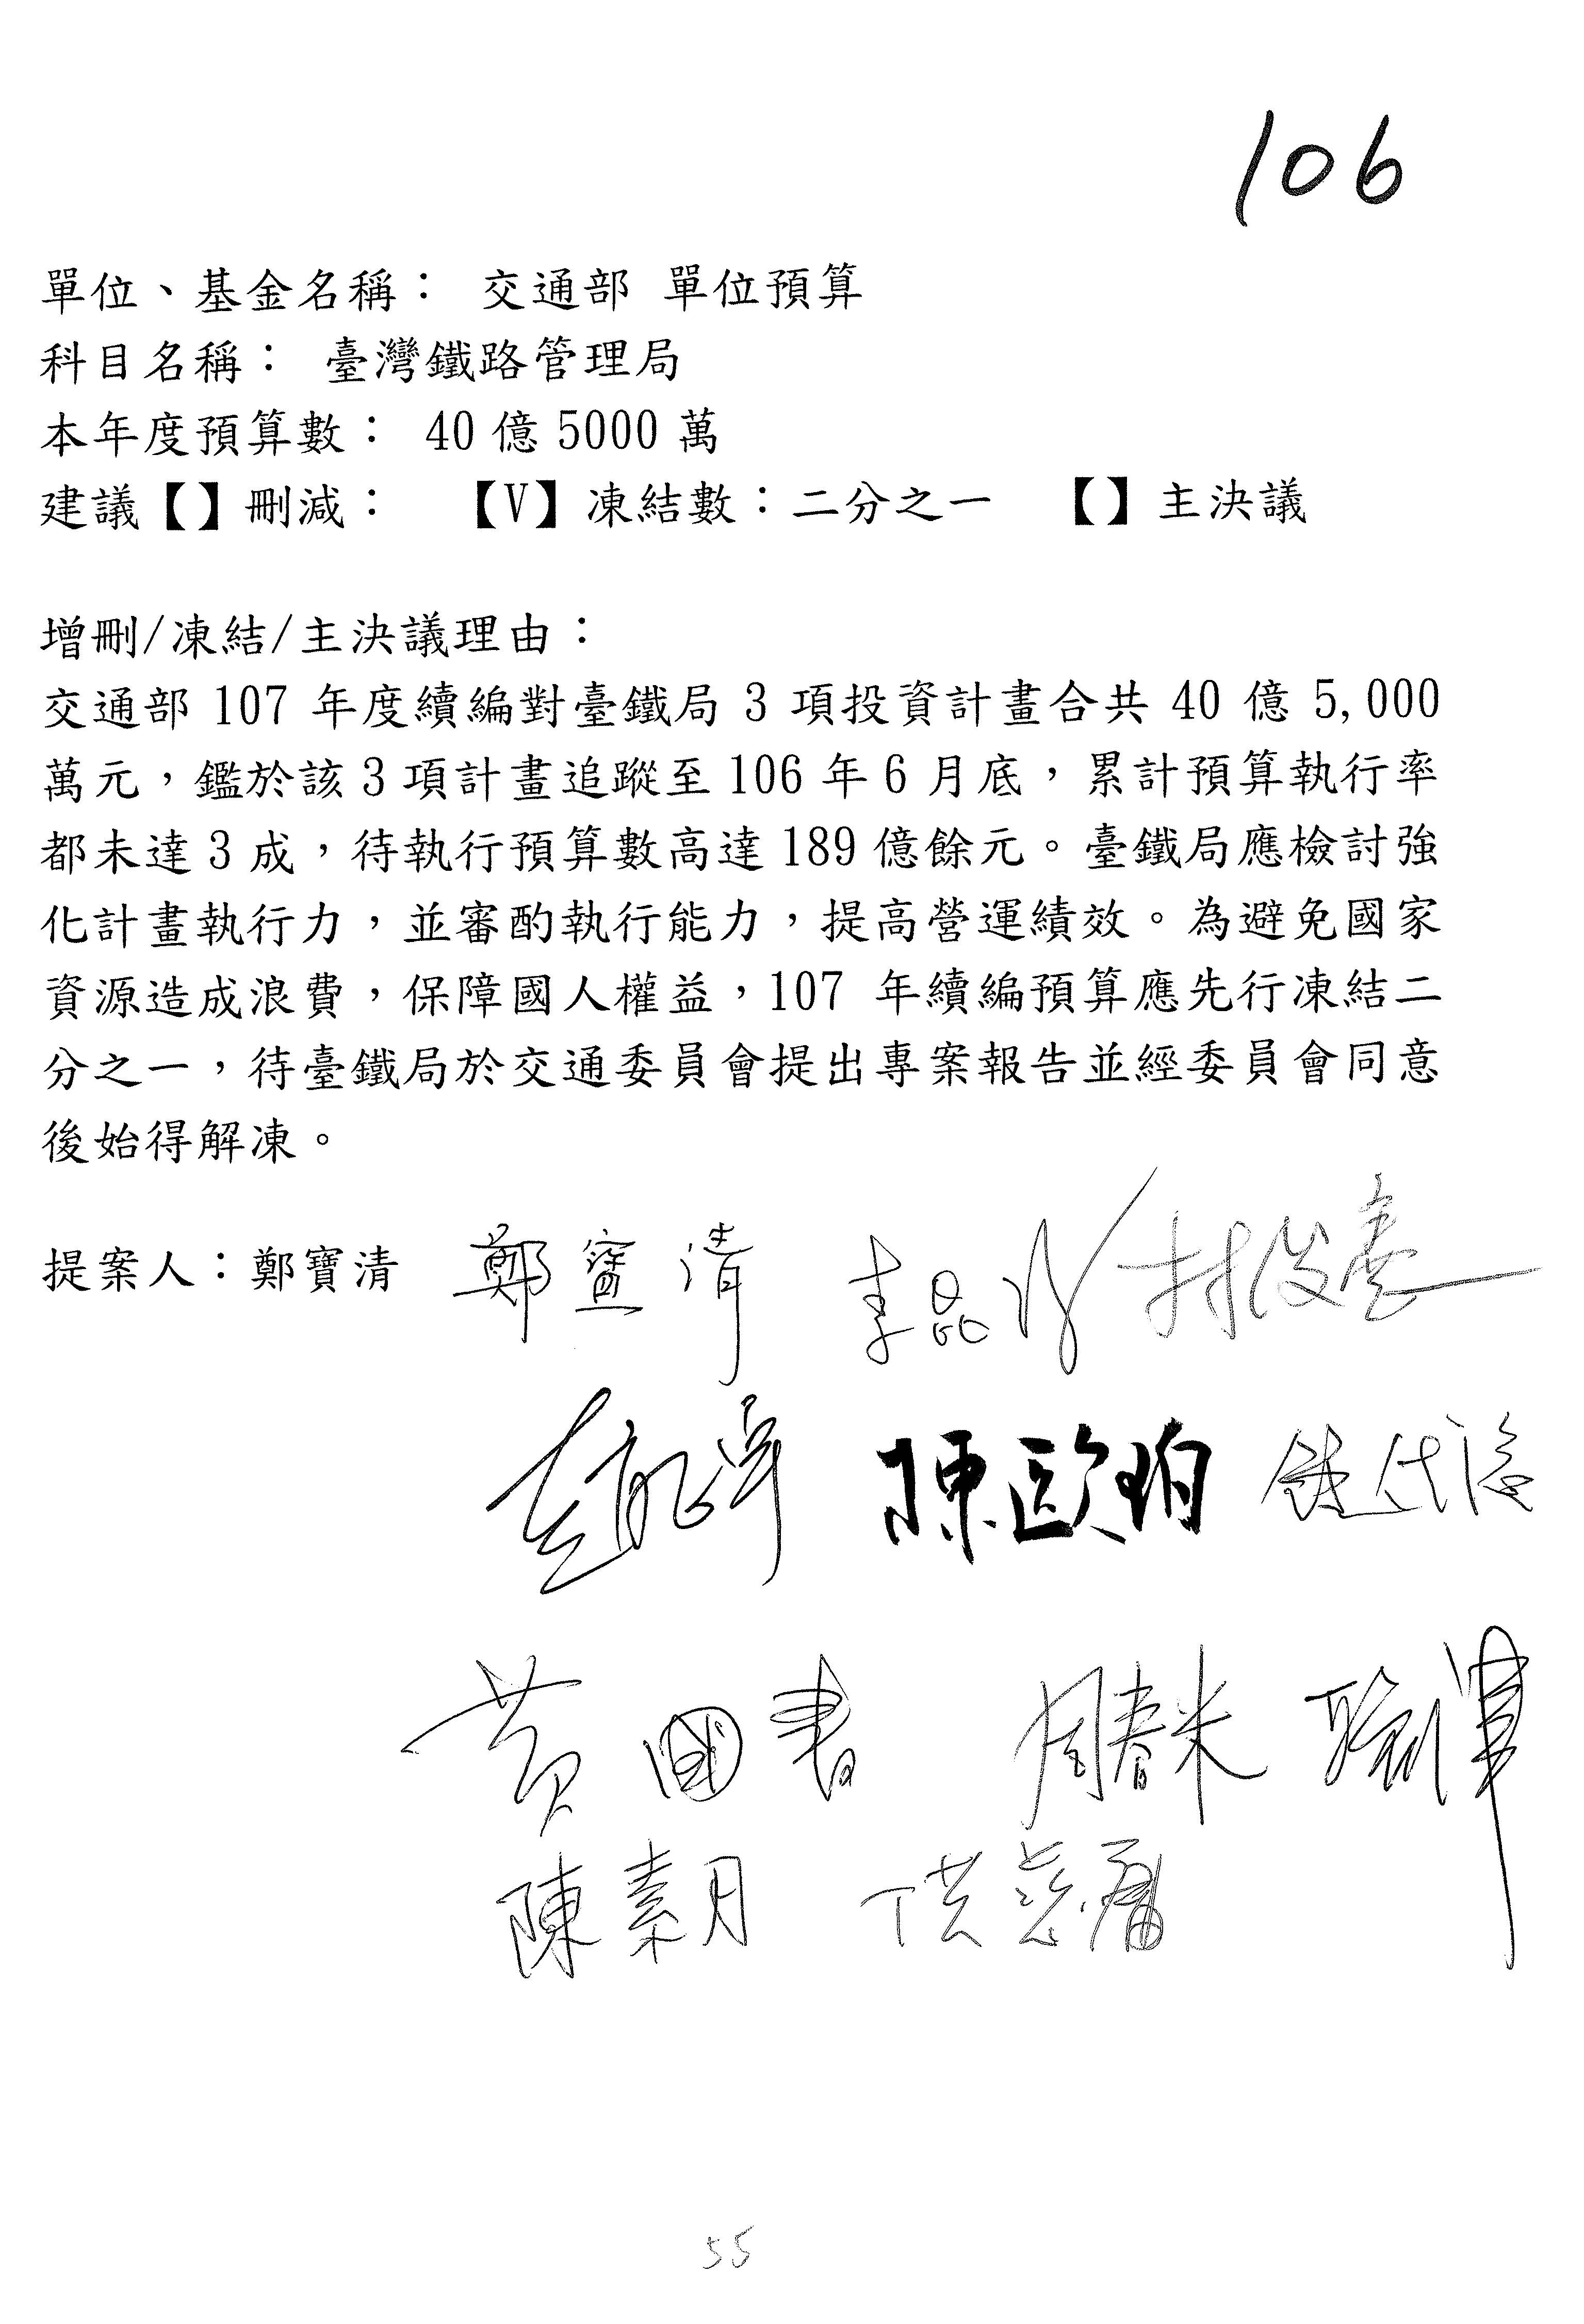 106
單位、基金名稱： 交通部 單位預算
科目名稱： 臺灣鐵路管理局
本年度預算數： 40 億 5000 萬
建議【】刪減： 【V】凍結數：二分之一 【】主決議
增刪/凍結/主決議理由：
交通部 107 年度續編對臺鐵局 3 項投資計畫合共 40 億 5,000
萬元，鑑於該 3 項計畫追蹤至 106 年 6 月底，累計預算執行率
都未達 3 成，待執行預算數高達 189 億餘元。臺鐵局應檢討強
化計畫執行力，並審酌執行能力，提高營運績效。為避免國家
資源造成浪費，保障國人權益，107 年續編預算應先行凍結二
分之一，待臺鐵局於交通委員會提出專案報告並經委員會同意
後始得解凍。
提案人：鄭寶清 鄭寶清 李昆澤 林俊憲
陳歐珀
黃國書 周春米
陳素月 洪慈庸
55